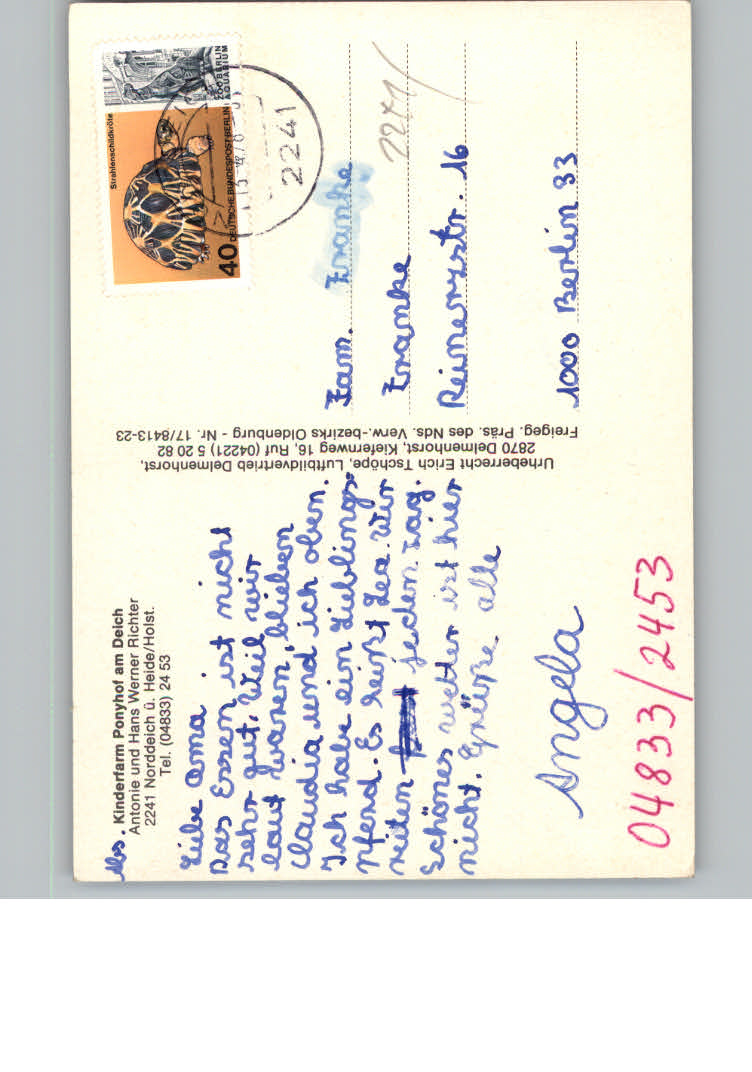 Abs. Kinderfarm Ponyhof am Deich
Antonie und Hans Werner Richter
2241 Norddeich ü. Heide/Holst.
Tel. (04833) 24 53
Liebe Oma
Das Essen ist nicht
sehr gut. Weil wir
laut waren, blieben
Claudia und ich oben.
Ich habe ein Lieblings-
pferd. Es heißt Lea. Wir
reiten jeden Tag.
Schönes wetter ist hier
nicht. Grüße alle
Angela
04833/2453
Urheberrecht Erich Tschöpe, Luftbildvertrieb Delmenhorst,
2870 Delmenhorst, Kiefernweg 16, Ruf (04221) 5 20 82
Freigeg. Präs. des Nds. Verw.-bezirks Oldenburg - Nr. 17/8413-23
Strahlenschildkröte
40 DEUTSCHE BUNDESPOST BERLIN
ZOO BERLIN
AQUARIUM
2241
2241/
Fam. Franke
Franke
Reinerzstr. 16
1000 Berlin 33